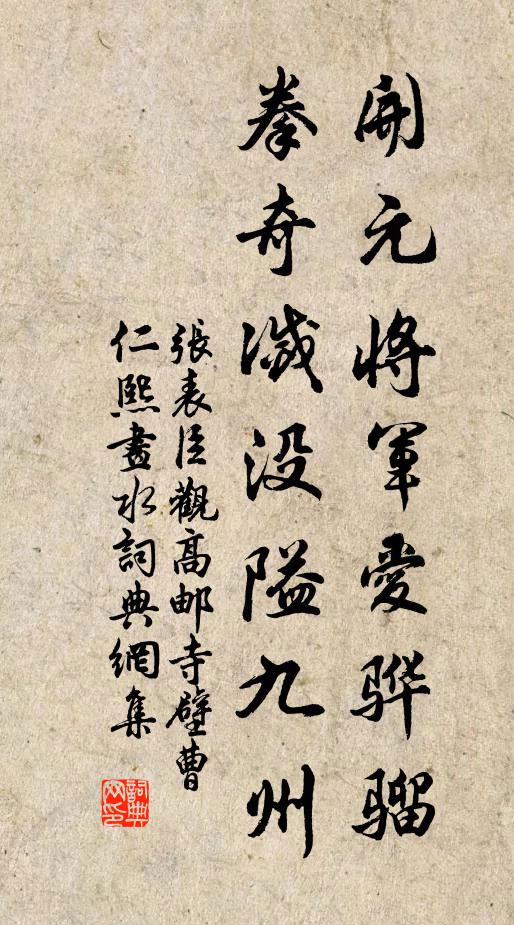 開元將軍愛骅骝
拳奇滅没隘九州
張表臣觀高邮寺壁曹
仁熙畫水詞典網集
詞典
网印